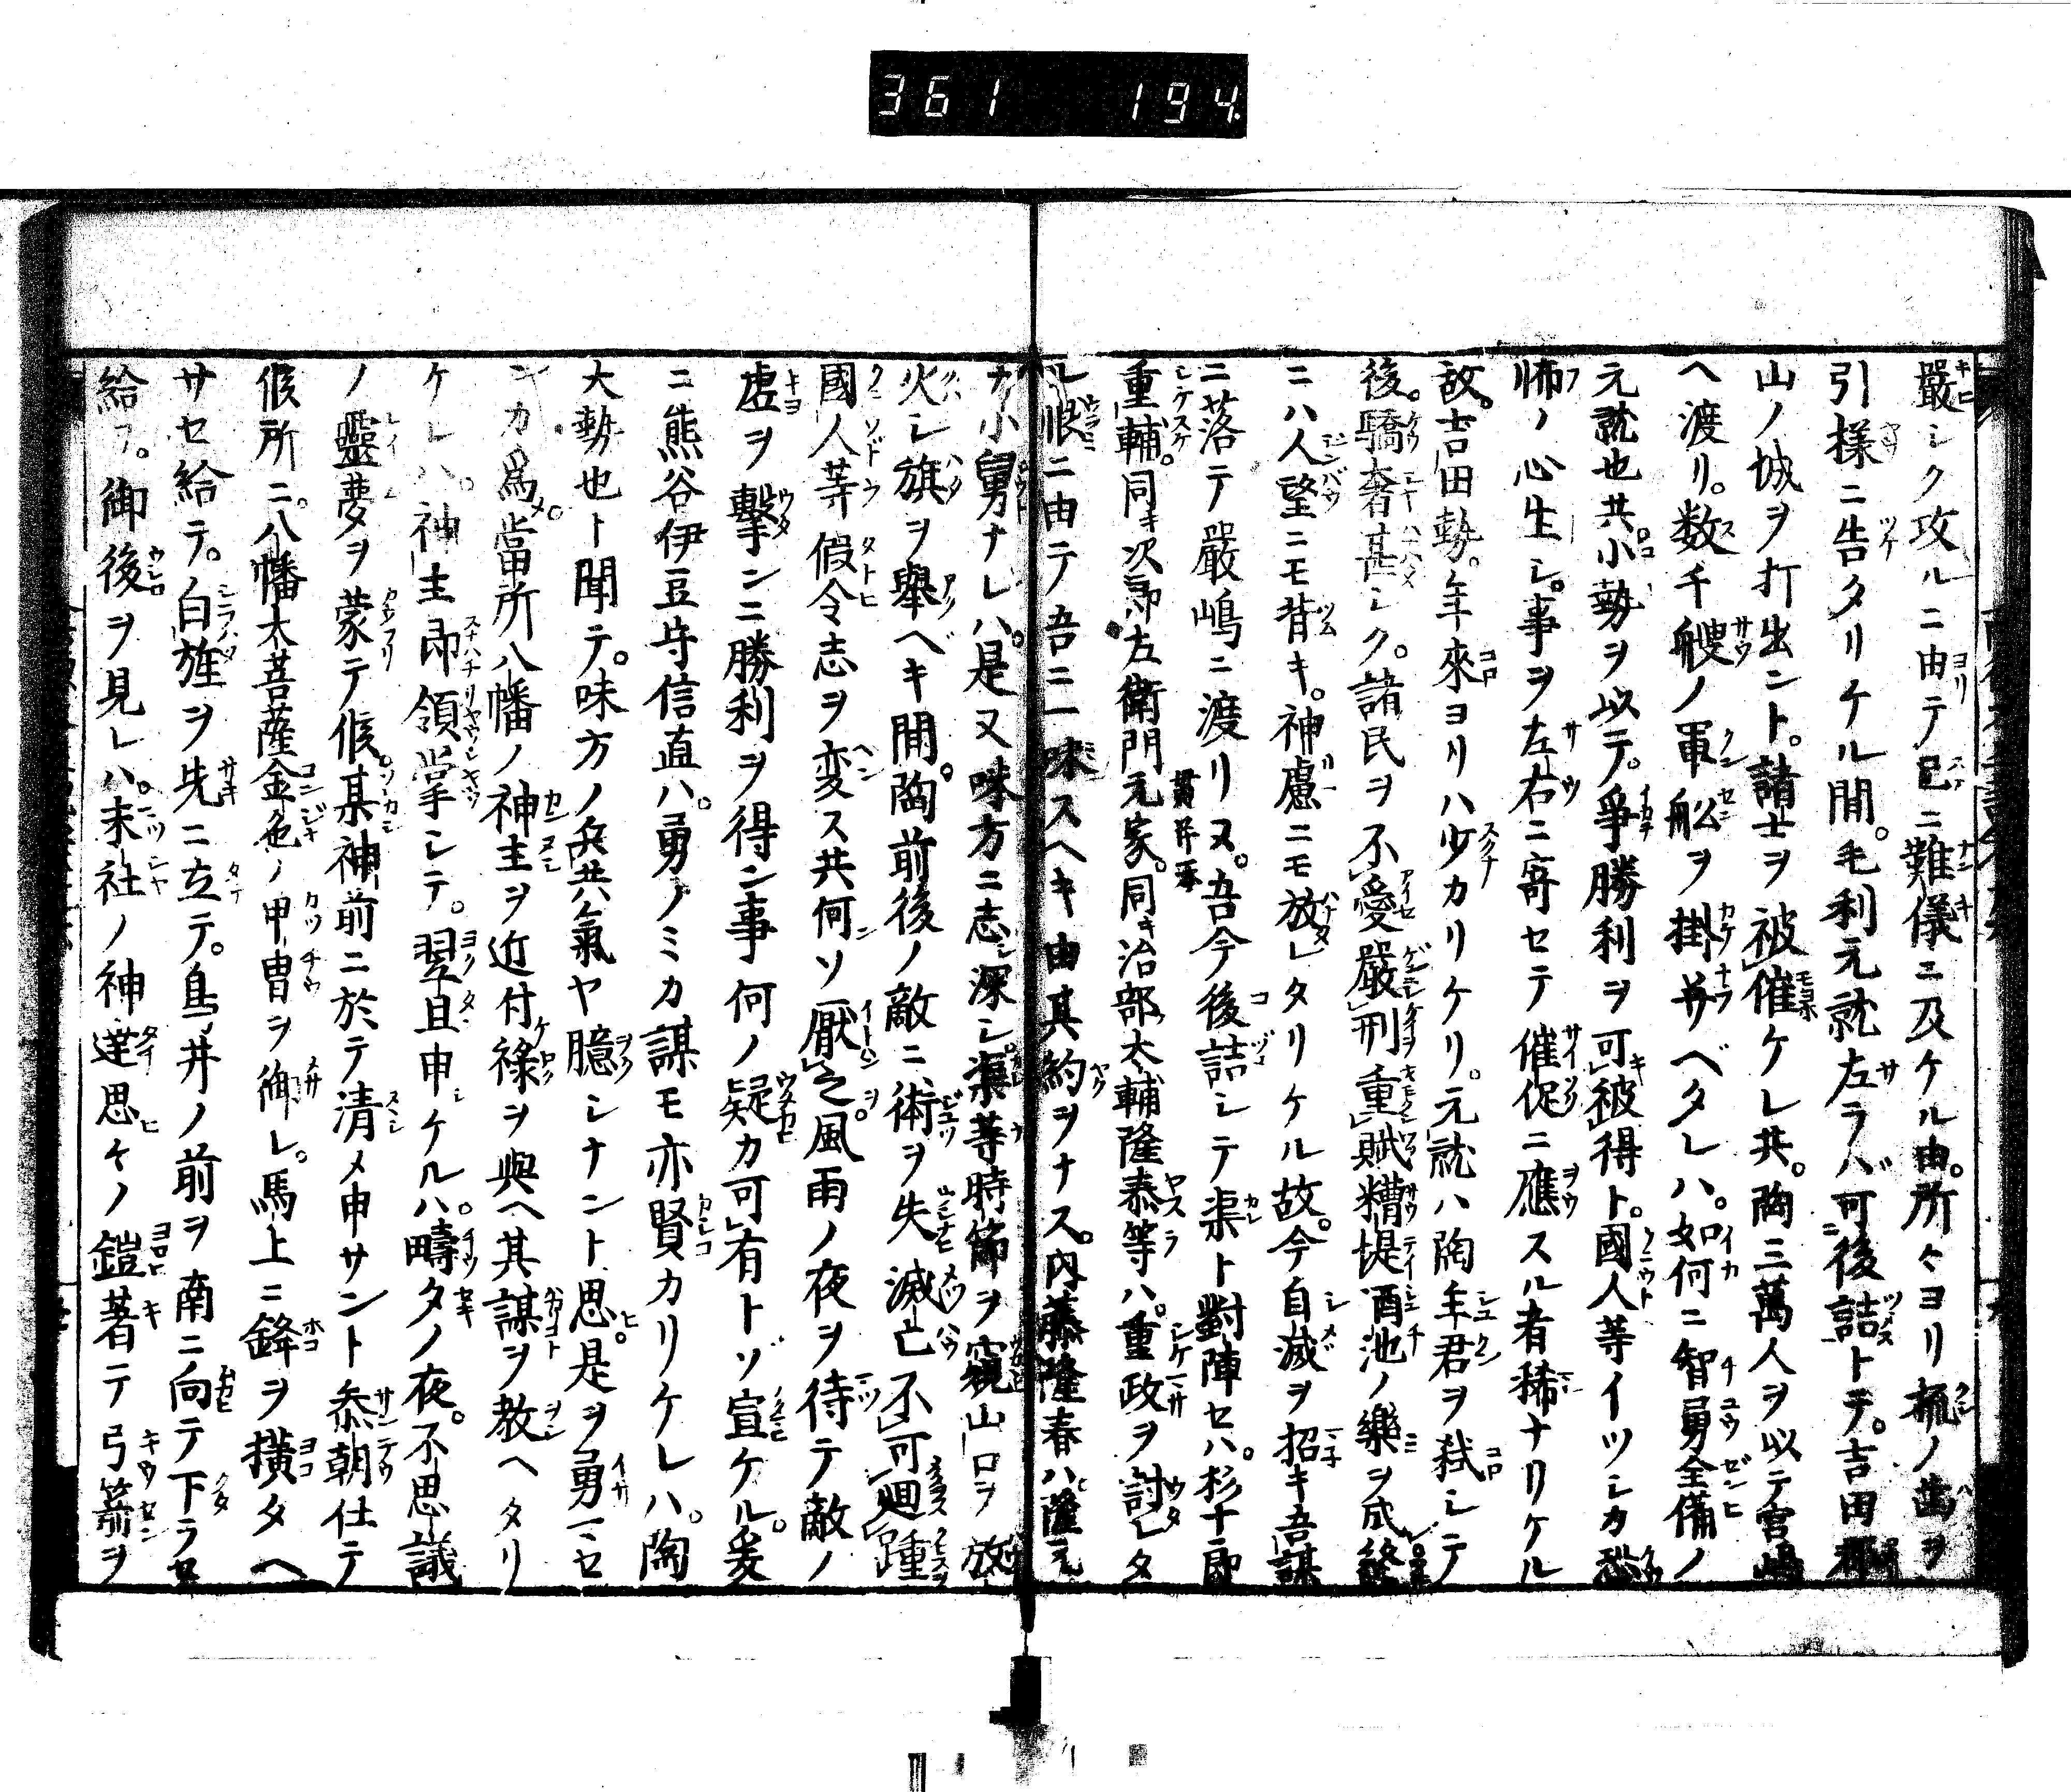 361 194.
嚴シク攻ルニ由テ已ニ難儀ニ及ケル由。所々ヨリ櫛ノ齒ヲ
引様ニ告タリケル間。毛利元就左ラバ可後詰トテ。吉田郡
山ノ城ヲ打出ント。諸士ヲ被催ケレ共。陶三萬人ヲ以テ宮嶋
ヘ渡リ。数千艘ノ軍舩ヲ掛並ベタレハ。如何ニ智勇全備ノ
元就也共。小勢ヲ以テ。爭勝利ヲ可被得ト。國人等イツシカ恐
怖ノ心生シ。事ヲ左右ニ寄セテ催促ニ應スル者稀ナリケル
故。吉田勢。年來ヨリハ少カリケリ。元就ハ陶年君ヲ弑シテ
後。驕奢甚シク。諸民ヲ不愛嚴刑重賦糟堤酒池ノ樂ヲ成
ニハ人望ニモ背キ。神慮ニモ放レタリケル故。今自滅ヲ招キ吾謀
ニ落テ嚴嶋ニ渡リヌ。吾今後詰シテ渠ト對陣セハ。杉十郎
重輔。同キ次郎左衛門元家。同キ治部太輔隆泰等ハ。重政ヲ討レタ
レ恨ニ由テ吾ニ一味スヘキ由其約ヲナス。内藤隆春ハ隆元
ナ小舅ナレハ。是又味方ニ志深シ渠等時節ヲ窺山口ヲ放
火シ旗ヲ擧ベキ間。陶前後ノ敵ニ術ヲ失滅亡不可廻踵
國人等假令志ヲ変ス共何ソ厭之風雨ノ夜ヲ待テ敵ノ
虚ヲ擊ンニ勝利ヲ得ン事何ノ疑カ可有トゾ宣ケル。爰
ニ熊谷伊豆守信直ハ。勇ノミカ謀モ亦賢カリケレハ。陶
大勢也ト聞テ。味方ノ兵共氣ヤ臆シナント思。是ヲ勇マセ
ンカ爲。當所八幡ノ神主ヲ近付祿ヲ與ヘ其謀ヲ敎ヘタリ
ケレハ。神主即領掌シテ。翌旦申ケルハ。疇タノ夜。不思議
ノ靈夢ヲ蒙テ候。某神前ニ於テ清メ申サント參朝仕テ
候所ニ。八幡大菩薩金色ノ甲冑ヲ御レ。馬上ニ鋒ヲ横タヘ
サセ給テ。白旌ヲ先ニ立テ。鳥井ノ前ヲ南ニ向テ下ラセ
給フ。御後ヲ見レハ。末社ノ神達思々ノ鎧著テ弓箭ヲ